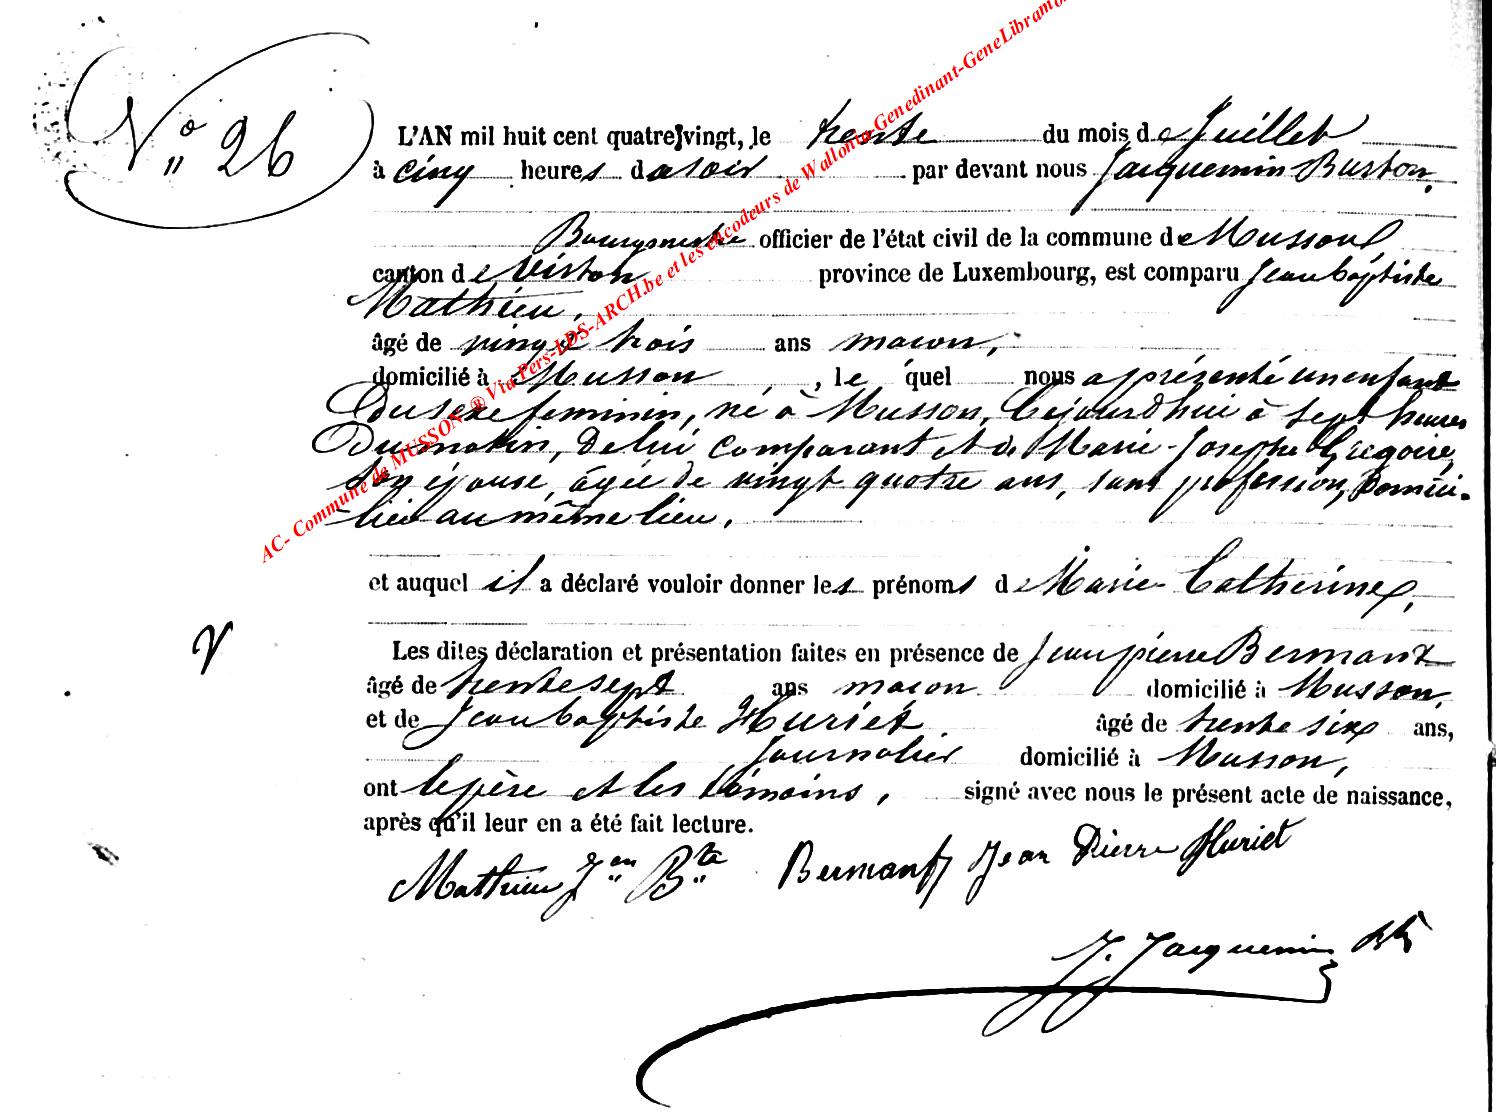 N° 26
L'AN mil huit cent quatre-vingt, le trente du mois de Juillet
à cinq heures du soir par devant nous Jacquemin Burton,
Bourgmestre officier de l'état civil de la commune de Musson
canton de Virton province de Luxembourg, est comparu Jean baptiste
Mathieu,
âgé de vingt trois ans maçon,
domicilié à Musson, le quel nous a présenté un enfant
du sexe feminin, né à Musson, cejourd'hui à sept heures
du matin, de lui comparant et de Marie-Josephe Gregoire,
son épouse, âgée de vingt quatre ans, sans profession, domici-
liée au même lieu,
et auquel il a déclaré vouloir donner les prénoms de Marie-Catherine,
V
Les dites déclaration et présentation faites en présence de Jean pierre Bermant
âgé de trente sept ans maçon domicilié à Musson,
et de Jean baptiste Huriet âgé de trente six ans,
Journalier domicilié à Musson,
ont le père et les témoins, signé avec nous le présent acte de naissance,
après qu'il leur en a été fait lecture.
Mathieu Jean Bte Bermant Jean Pierre Huriet
J. Jacquemin
AC- Commune de MUSSON ® Via Pers-LDS-ARCH.be et les encodeurs de Wallonia-Genedinant-GeneLibramo